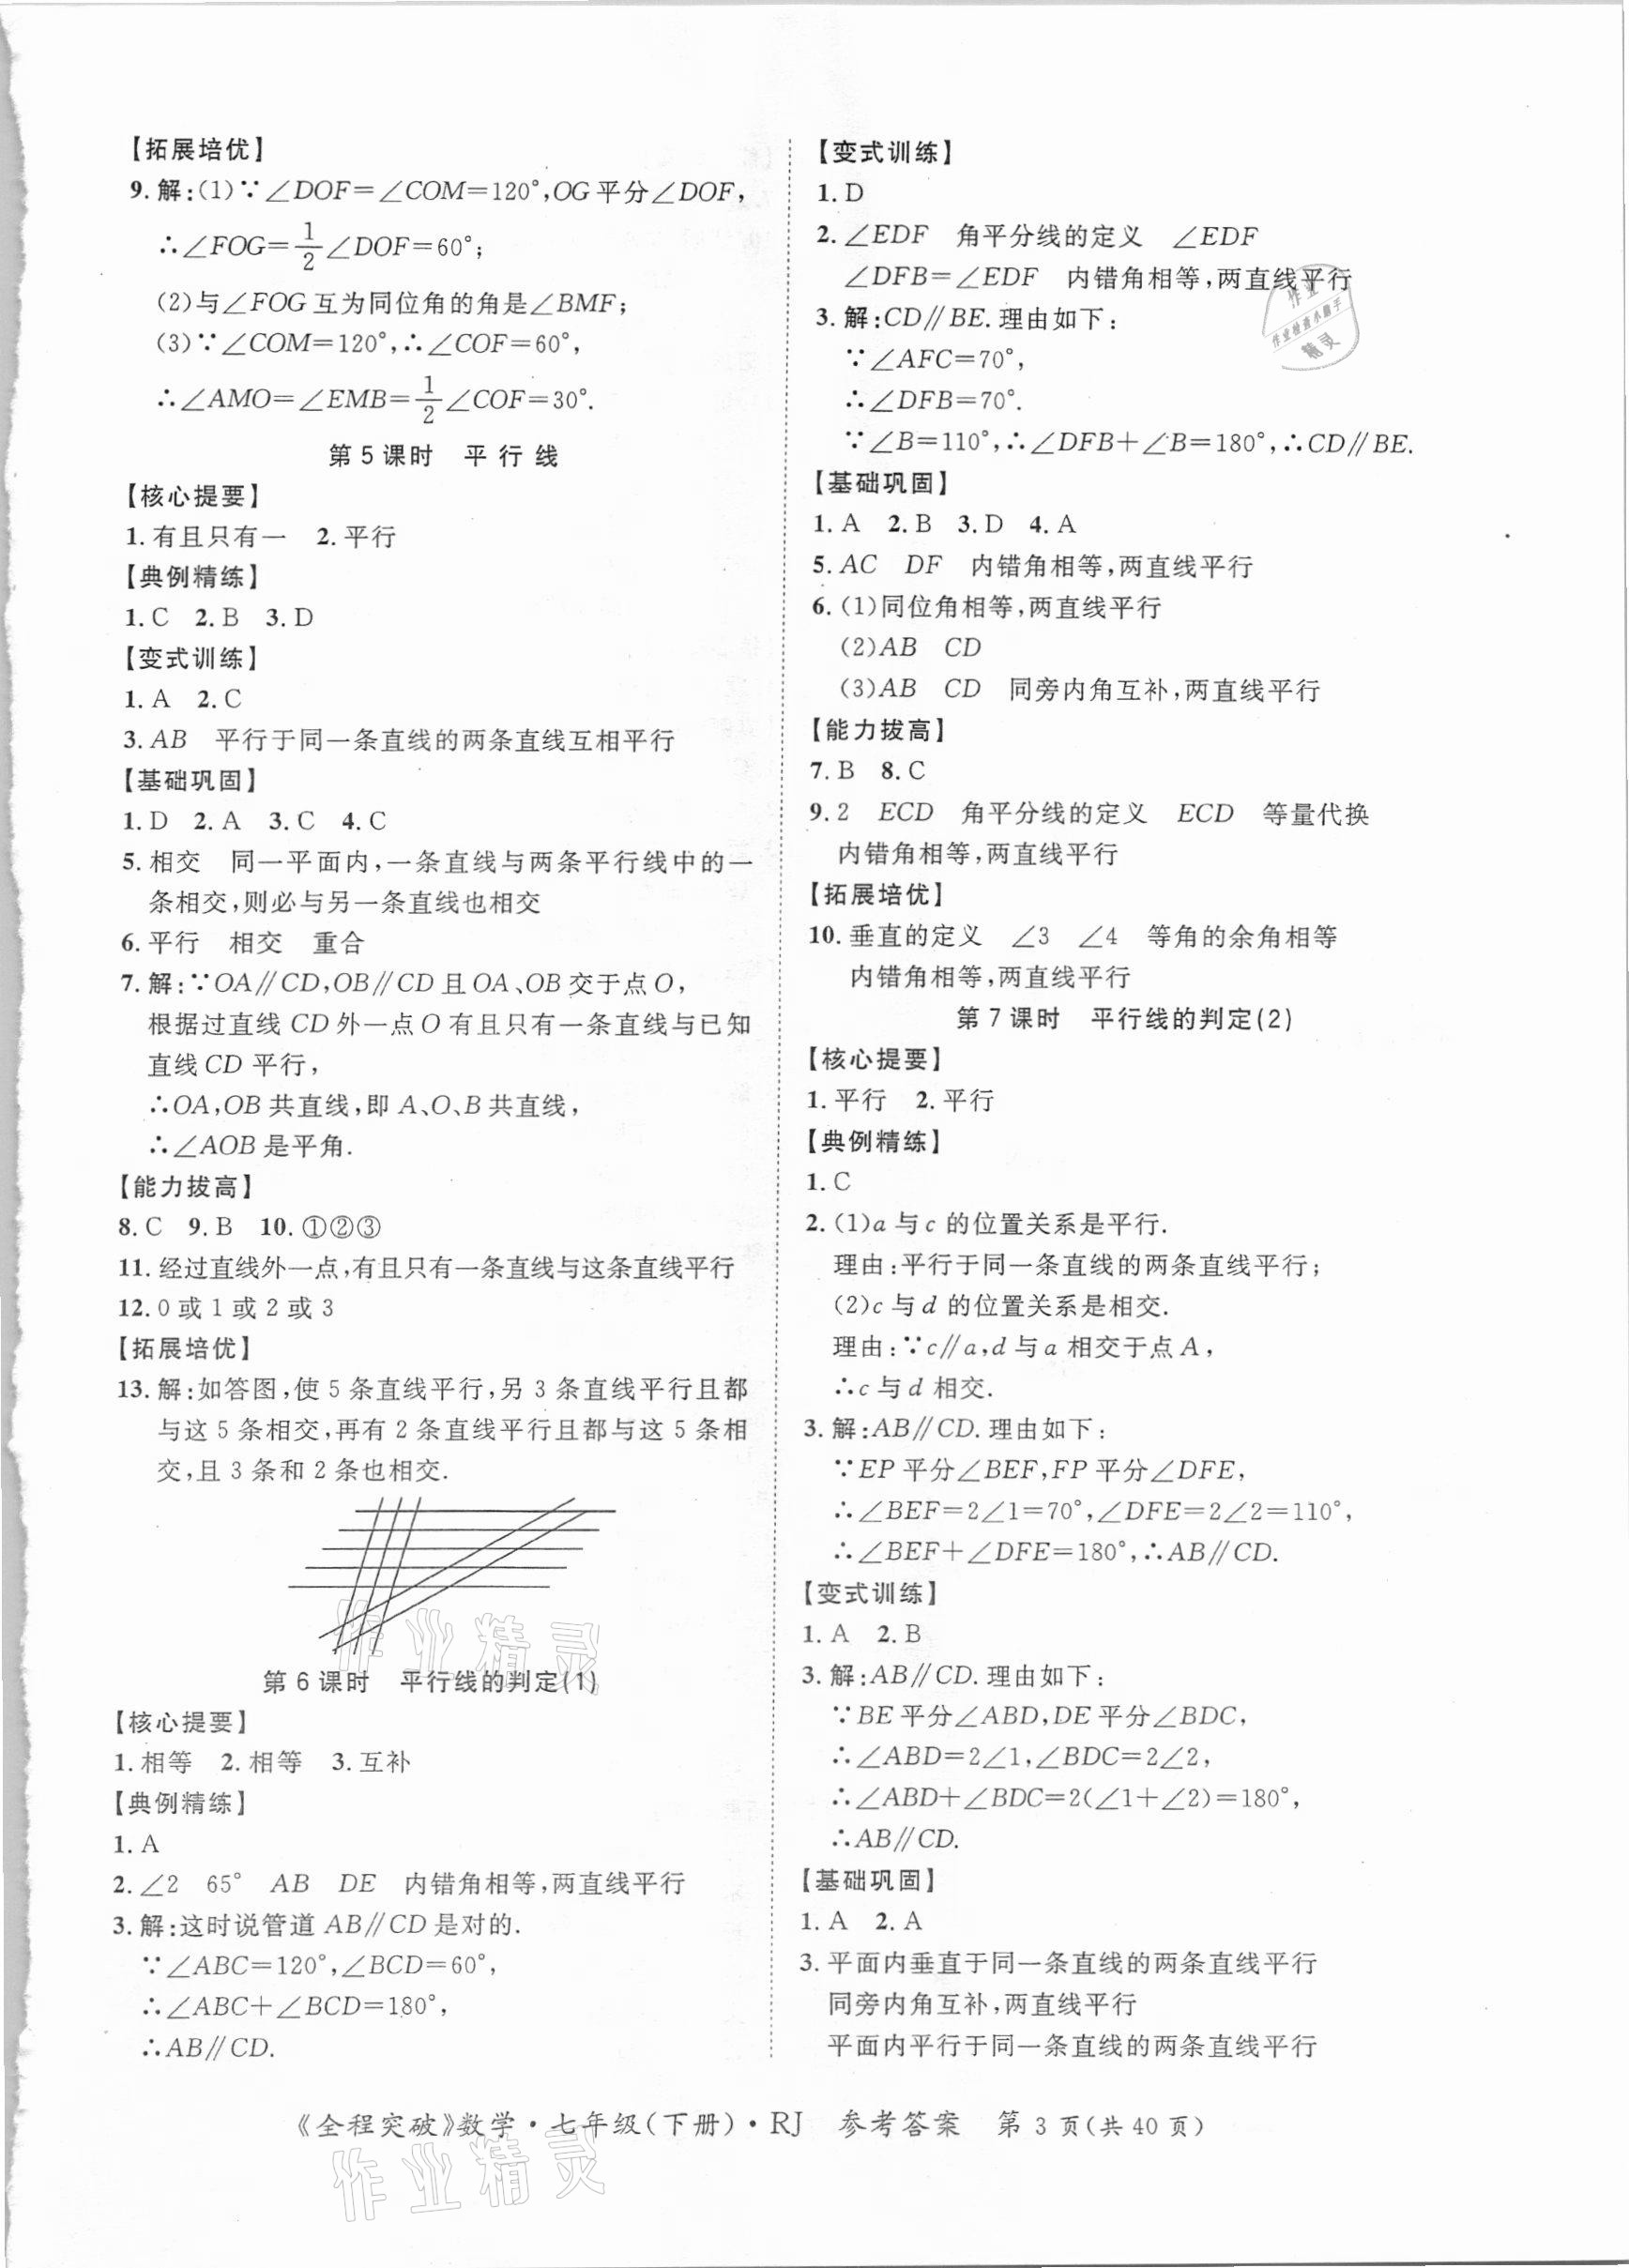 【拓展培优】
9. 解:(1)∵∠DOF=∠COM=120°,OG 平分∠DOF,
∴∠FOG=1/2∠DOF=60°;
(2)与∠FOG 互为同位角的角是∠BMF;
(3)∵∠COM=120°,∴∠COF=60°,
∴∠AMO=∠EMB=1/2∠COF=30°.
第 5 课时 平 行 线
【核心提要】
1. 有且只有一 2. 平行
【典例精练】
1. C 2. B 3. D
【变式训练】
1. A 2. C
3. AB 平行于同一条直线的两条直线互相平行
【基础巩固】
1. D 2. A 3. C 4. C
5. 相交 同一平面内,一条直线与两条平行线中的一
条相交,则必与另一条直线也相交
6. 平行 相交 重合
7. 解:∵OA∥CD,OB∥CD 且 OA、OB 交于点 O,
根据过直线 CD 外一点 O 有且只有一条直线与已知
直线 CD 平行,
∴OA,OB 共直线,即 A、O、B 共直线,
∴∠AOB 是平角.
【能力拔高】
8. C 9. B 10. ①②③
11. 经过直线外一点,有且只有一条直线与这条直线平行
12. 0 或 1 或 2 或 3
【拓展培优】
13. 解:如答图,使 5 条直线平行,另 3 条直线平行且都
与这 5 条相交,再有 2 条直线平行且都与这 5 条相
交,且 3 条和 2 条也相交.
第 6 课时 平行线的判定(1)
【核心提要】
1. 相等 2. 相等 3. 互补
【典例精练】
1. A
2. ∠2 65° AB DE 内错角相等,两直线平行
3. 解:这时说管道 AB∥CD 是对的.
∵∠ABC=120°,∠BCD=60°,
∴∠ABC+∠BCD=180°,
∴AB∥CD.
【变式训练】
1. D
2. ∠EDF 角平分线的定义 ∠EDF
∠DFB=∠EDF 内错角相等,两直线平行
3. 解:CD∥BE. 理由如下:
∵∠AFC=70°,
∴∠DFB=70°.
∵∠B=110°,∴∠DFB+∠B=180°,∴CD∥BE.
【基础巩固】
1. A 2. B 3. D 4. A
5. AC DF 内错角相等,两直线平行
6. (1)同位角相等,两直线平行
(2)AB CD
(3)AB CD 同旁内角互补,两直线平行
【能力拔高】
7. B 8. C
9. 2 ECD 角平分线的定义 ECD 等量代换
内错角相等,两直线平行
【拓展培优】
10. 垂直的定义 ∠3 ∠4 等角的余角相等
内错角相等,两直线平行
第 7 课时 平行线的判定(2)
【核心提要】
1. 平行 2. 平行
【典例精练】
1. C
2. (1)a 与 c 的位置关系是平行.
理由:平行于同一条直线的两条直线平行;
(2)c 与 d 的位置关系是相交.
理由:∵c∥a,d 与 a 相交于点 A,
∴c 与 d 相交.
3. 解:AB∥CD. 理由如下:
∵EP 平分∠BEF,FP 平分∠DFE,
∴∠BEF=2∠1=70°,∠DFE=2∠2=110°,
∴∠BEF+∠DFE=180°,∴AB∥CD.
【变式训练】
1. A 2. B
3. 解:AB∥CD. 理由如下:
∵BE 平分∠ABD,DE 平分∠BDC,
∴∠ABD=2∠1,∠BDC=2∠2,
∴∠ABD+∠BDC=2(∠1+∠2)=180°,
∴AB∥CD.
【基础巩固】
1. A 2. A
3. 平面内垂直于同一条直线的两条直线平行
同旁内角互补,两直线平行
平面内平行于同一条直线的两条直线平行
《全程突破》数学·七年级(下册)·RJ 参考答案 第 3 页(共 40 页)
作业精灵
作业精灵
作业
作业检查小助手
精灵